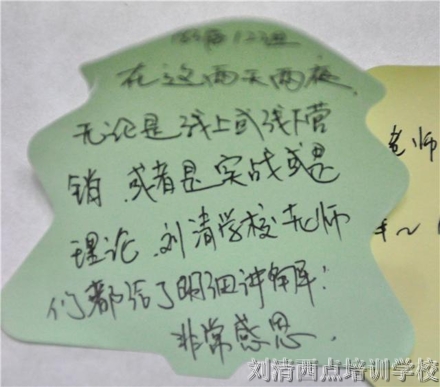 在这两天两夜
无论是线上或线下营
销、或者是实战或是
理论、刘清学校老师
们都给了明细讲解!
非常感恩.
老师
刘清两点培训学校